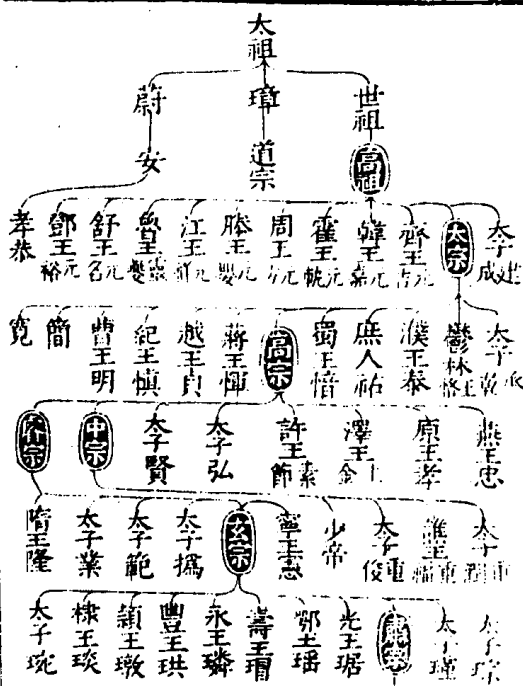 太祖
世祖
璋
蔚
高祖
道宗
安
太子建成
太宗
齊王元吉
韓王元嘉
霍王元軌
周王元方
滕王元嬰
江王元祥
魯王靈夔
舒王元名
鄧王元裕
孝恭
太子承乾
鬱林王恪
濮王泰
庶人祐
蜀王愔
高宗
蔣王惲
越王貞
紀王慎
曹王明
簡
寬
燕王忠
原王孝
澤王上金
許王素節
太子弘
太子賢
中宗
睿宗
太子重潤
譙王重福
太子重俊
少帝
寧王憲
玄宗
太子撝
太子範
太子業
隋王隆
太子琮
太子瑾
肅宗
光王琚
鄂王瑤
壽王瑁
永王璘
豐王珙
潁王璬
棣王琰
太子琬